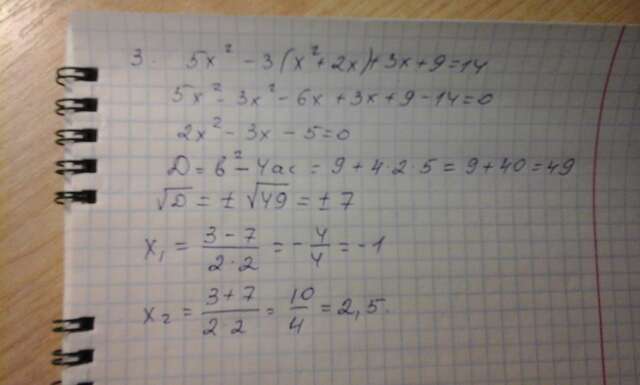 3. 5x² - 3(x² + 2x) + 3x + 9 = 14
5x² - 3x² - 6x + 3x + 9 - 14 = 0
2x² - 3x - 5 = 0
D = b² - 4ac = 9 + 4·2·5 = 9 + 40 = 49
√D = ± √49 = ± 7
x₁ = (3 - 7)/(2·2) = - 4/4 = -1
x₂ = (3 + 7)/(2·2) = 10/4 = 2,5.